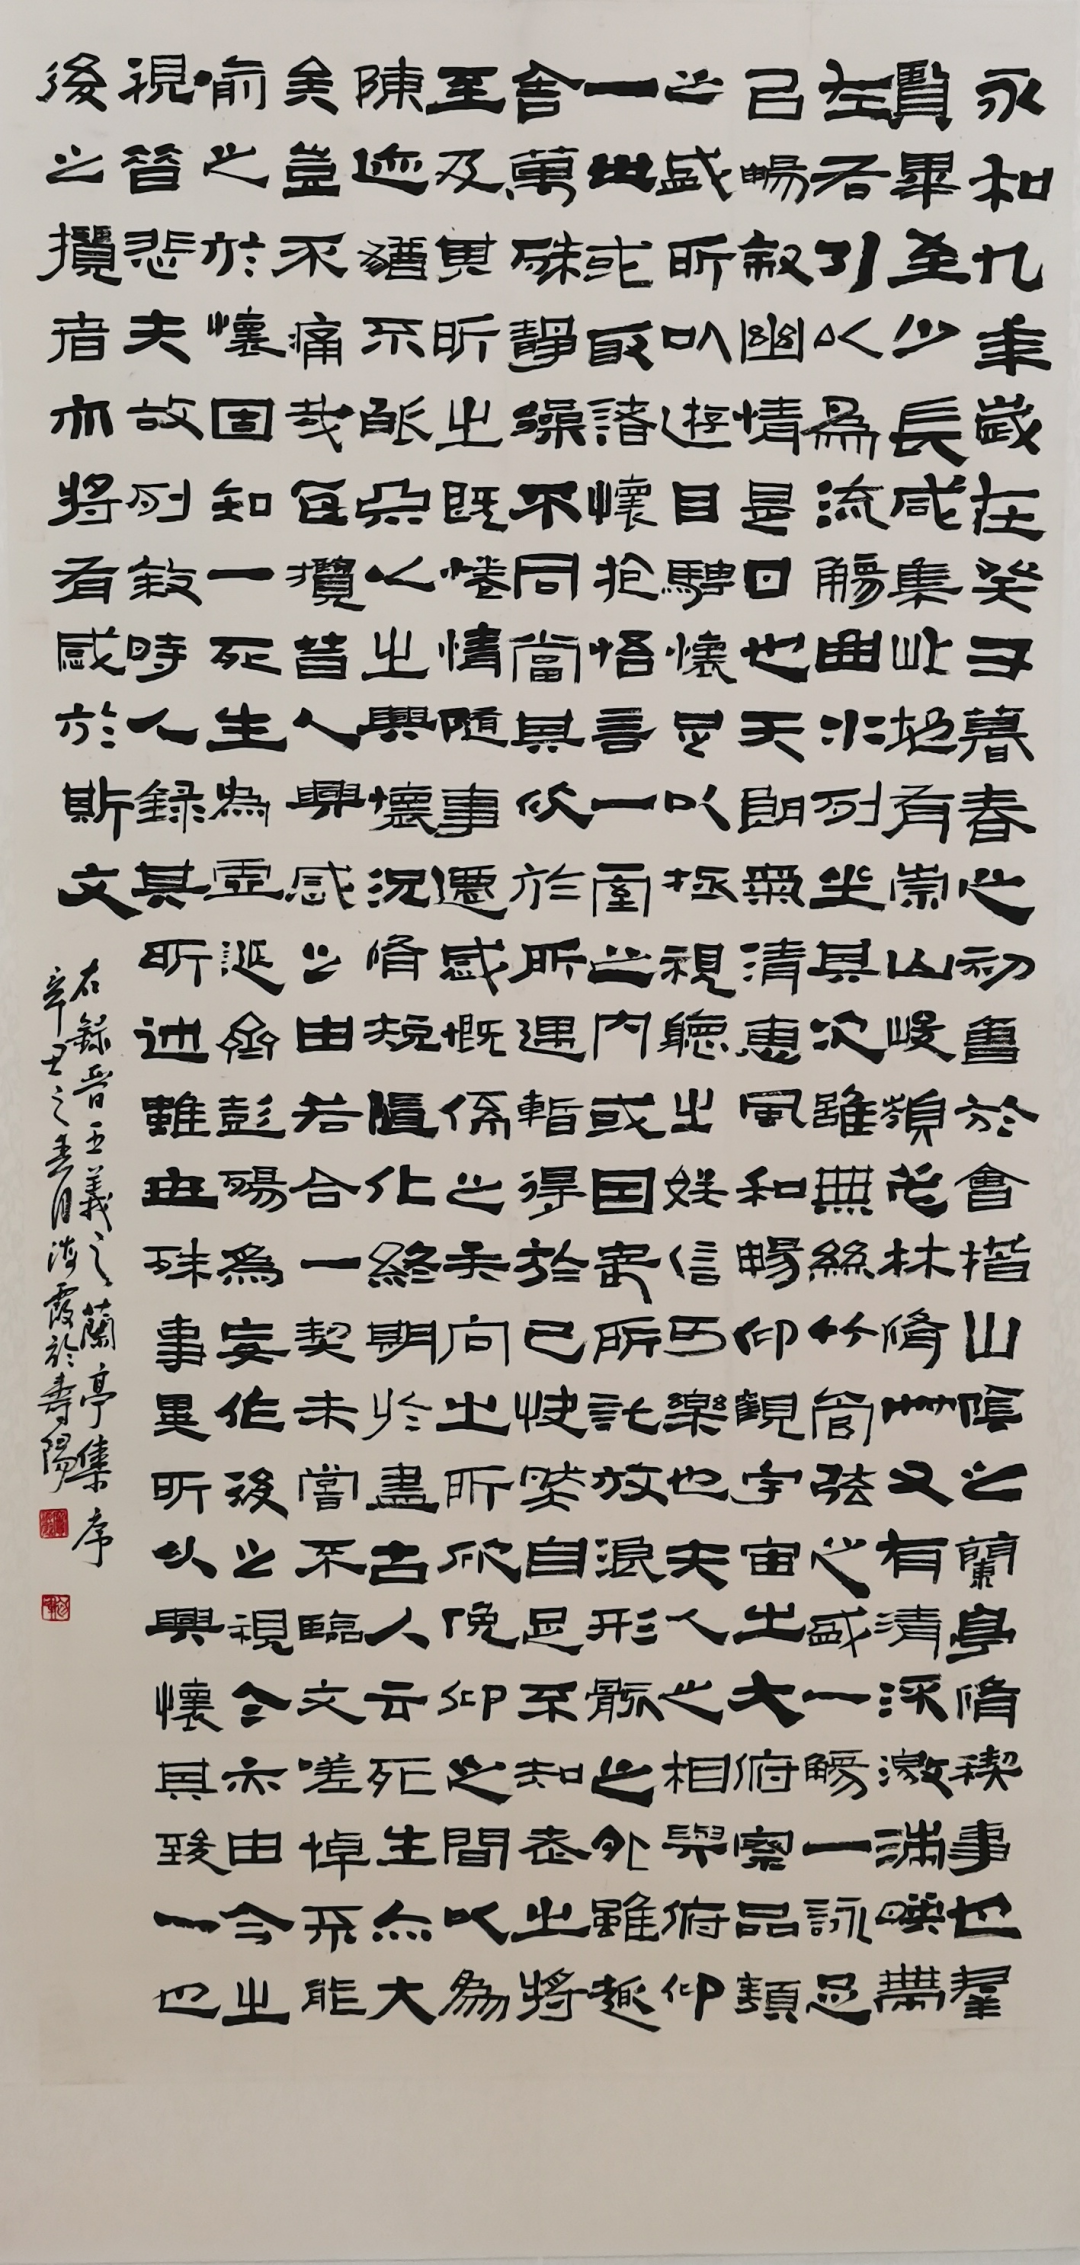 永和九年歲在癸丑暮春之初會於會稽山陰之蘭亭脩禊事也羣
賢畢至少長咸集此地有崇山峻領茂林脩竹又有清流激湍暎帶
左右引以為流觴曲水列坐其次雖無絲竹管弦之盛一觴一詠足
已暢敘幽情是日也天朗氣清惠風和暢仰觀宇宙之大俯察品類
之盛所以遊目騁懷足以極視聽之娛信可樂也夫人之相與俯仰
一世或取諸懷抱悟言一室之內或因寄所託放浪形骸之外雖趣
舍萬殊靜躁不同當其欣於所遇暫得於己快然自足不知老之將
至及其所之既惓情隨事遷感慨係之矣向之所欣俛仰之間以為
陳迹猶不能不以之興懷況脩短隨化終期於盡古人云死生亦大
矣豈不痛哉每攬昔人興感之由若合一契未嘗不臨文嗟悼不能
喻之於懷固知一死生為虛誕齊彭殤為妄作後之視今亦由今之
視昔悲夫故列敘時人錄其所述雖世殊事異所以興懷其致一也
後之攬者亦將有感於斯文
右錄晉王羲之蘭亭集序
辛丑之春月海霞於壽陽